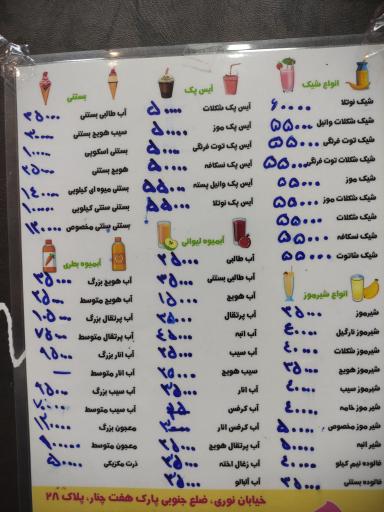 انواع شیک
شیک نوتلا ۶۰۰۰۰
شیک شکلات وانیل ۵۵۰۰۰
شیک توت فرنگی ۵۵۰۰۰
شیک شکلات توت فرنگی ۵۵۰۰۰
شیک موز ۵۵۰۰۰
شیک شکلات موز ۵۵۰۰۰
شیک شکلات ۵۵۰۰۰
شیک نسکافه ۵۵۰۰۰
شیک شاتوت ۵۵۰۰۰
انواع شیرموز
شیرموز ۳۵۰۰۰
شیرموز نارگیل ۴۰۰۰۰
شیرموز شکلات ۴۰۰۰۰
شیرموز هویج ۳۵۰۰۰
شیرموز سیب ۴۰۰۰۰
شیر موز خامه ۴۰۰۰۰
شیر موز مخصوص ۵۰۰۰۰
شیر انبه ۵۰۰۰۰
فالوده نیم کیلو ۴۰۰۰۰
فالوده بستنی ۳۵۰۰۰
آیس پک
آیس پک شکلات ۵۰۰۰۰
آیس پک موز ۵۰۰۰۰
آیس پک توت فرنگی ۵۰۰۰۰
آیس پک نسکافه ۵۰۰۰۰
آیس پک وانیل پسته ۵۵۰۰۰
آیس پک نوتلا ۵۵۰۰۰
آبمیوه لیوانی
آب طالبی ۲۵۰۰۰
آب طالبی بستنی ۳۵۰۰۰
آب هویج
آب پرتقال
آب انبه
آب سیب
سیب هویج
آب انار
آب کرفس
آب کرفس انار
آب پرتقال هویج
آب زغال اخته
آب آلبالو
بستنی
آب طالبی بستنی ۳۵۰۰۰
سیب هویج بستنی
بستنی اسکوپی
هویج بستنی
بستنی میوه ای کیلویی
بستنی سنتی کیلویی
بستنی سنتی مخصوص
آبمیوه بطری
آب هویج بزرگ
آب هویج متوسط
آب پرتقال بزرگ
آب پرتقال متوسط
آب انار بزرگ
آب انار متوسط
آب سیب بزرگ
آب سیب متوسط
معجون بزرگ
معجون متوسط
ذرت مکزیکی ۵۰۰۰۰
خیابان نوری، ضلع جنوبی پارک هفت چنار، پلاک ۲۸